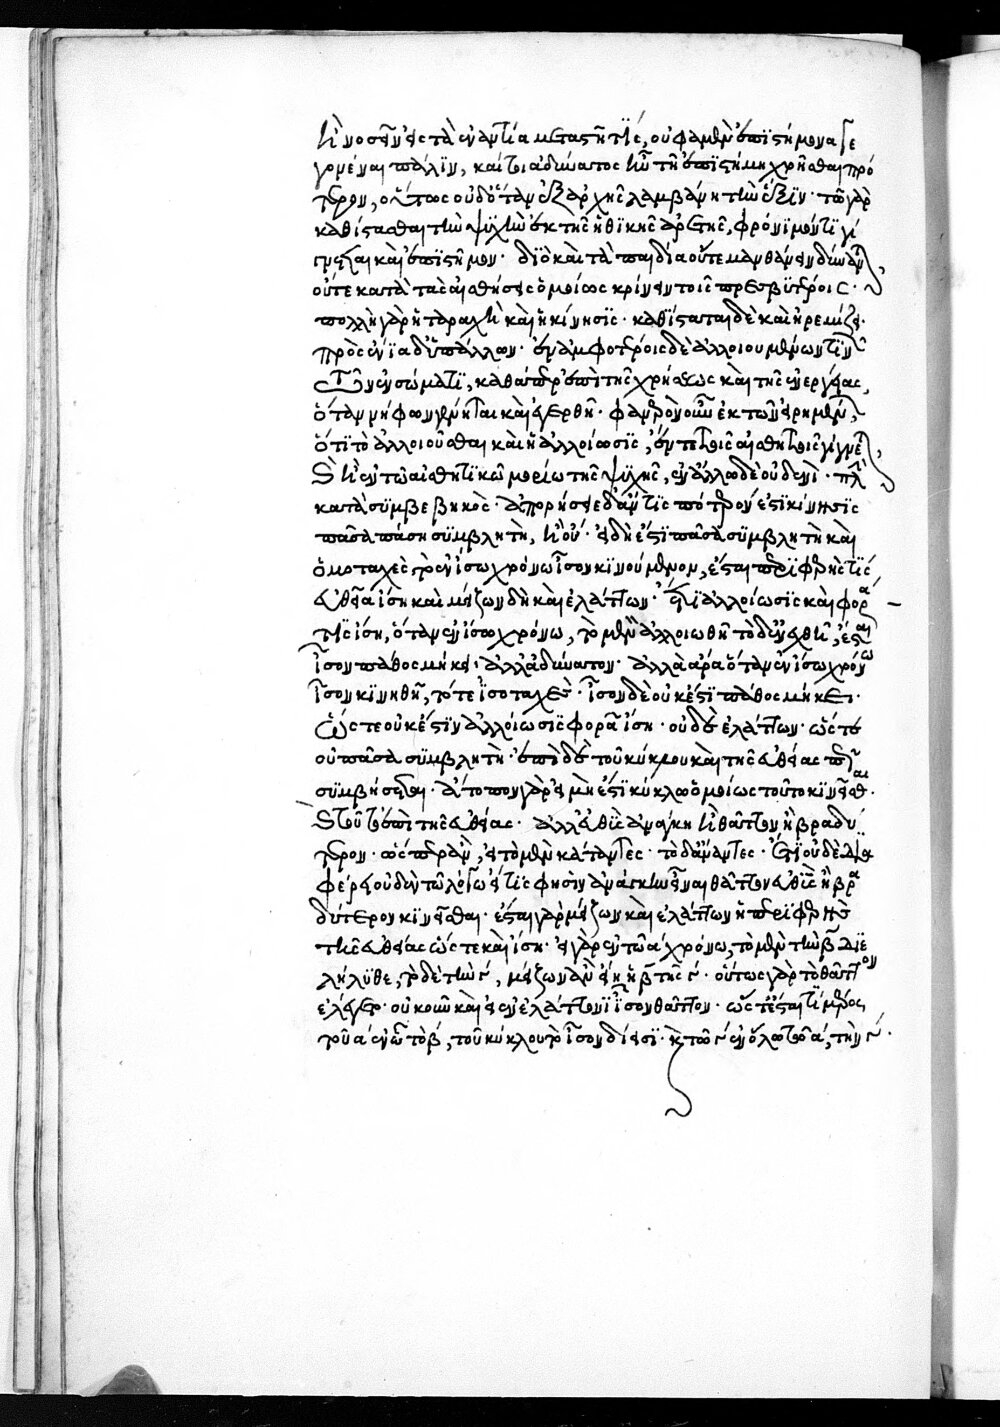 ἢ νοσεῖν εἰς τὰ ἐναντία μεταστῇ τις, οὐ φαμὲν ἐπιστήμονα γε
γονέναι πάλιν, καίτοι ἀδύνατος ἦν τῇ ἐπιστήμῃ χρῆσθαι πρό
τερον, οὕτως οὐδ' ὅταν ἐξ ἀρχῆς λαμβάνῃ τὴν ἕξιν· τῷ γὰρ
καθίστασθαι τὴν ψυχὴν ἐκ τῆς ἠθικῆς ἀρετῆς, φρόνιμόν τι γί
γνεσθαι καὶ ἐπιστῆμον· διὸ καὶ τὰ παιδία οὔτε μανθάνειν δύναν
οὔτε κατὰ τὰς αἰσθήσεις ὁμοίως κρίνειν τοῖς πρεσβυτέροις·
πολλὴ γὰρ ἡ ταραχὴ καὶ ἡ κίνησις· καθίσταται δὲ καὶ ἠρεμίζε
πρὸς ἔνια δ' ὑπ' ἄλλων· ἐν ἀμφοτέροις δὲ ἀλλοιουμένων τιν
τῶν ἐν σώματι, καθάπερ ἐπὶ τῆς χρήσεως καὶ τῆς ἐνεργείας,
ὅταν νήφων γένηται καὶ ἐγερθῇ· φανερὸν οὖν ἐκ τῶν εἰρημένων,
ὅτι τὸ ἀλλοιοῦσθαι καὶ ἡ ἀλλοίωσις, ἐν τε τοῖς αἰσθητοῖς γίγνε
καὶ ἐν τῷ αἰσθητικῷ μορίῳ τῆς ψυχῆς, ἐν ἄλλῳ δὲ οὐδενὶ· πλὴν
κατὰ συμβεβηκός· ἀπορήσειε δ' ἄν τις πότερόν ἐστι κίνησις
πᾶσα πάσῃ συμβλητὴ, ἢ οὔ· εἰ δή ἐστι πᾶσα συμβλητὴ καὶ
ὁμοταχὲς τὸ ἐν ἴσῳ χρόνῳ ἴσον κινούμενον, ἔσται περιφερής τις
εὐθεῖα ἴση καὶ μείζων δὴ καὶ ἐλάττων· ἔτι ἀλλοίωσις καὶ φορά
τις ἴση, ὅταν ἐν ἴσῳ χρόνῳ, τὸ μὲν ἀλλοιωθῇ τὸ δ' ἐνεχθῇ, ἔσται
ἴσον πάθος μήκει· ἀλλ' ἀδύνατον· ἀλλὰ ἆρα ὅταν ἐν ἴσῳ χρόνῳ
ἴσον κινηθῇ, τότε ἰσοταχές· ἴσον δὲ οὐκ ἔστι πάθος μήκει·
ὥστε οὐκ ἔστιν ἀλλοίωσις φορᾷ ἴση· οὐδ' ἐλάττων· ὥστ'
οὐ πᾶσα συμβλητὴ· ἐπὶ δὲ τοῦ κύκλου καὶ τῆς εὐθείας πῶς
συμβήσεται· ἄτοπον γὰρ εἰ μὴ ἔστι κύκλῳ ὁμοίως τοῦτο κινεῖσθαι·
καὶ τοῦτο ἐπὶ τῆς εὐθείας· ἀλλ' εὐθὺς ἀνάγκη ἢ θᾶττον ἢ βραδύ
τερον· ὥσπερ ἂν, εἰ τὸ μὲν κάταντες· τὸ δ' ἄναντες· ἔτι οὐδὲ δια
φέρει οὐδὲν τῷ λόγῳ εἴ τις φησὶν ἀνάγκην εἶναι θᾶττον εὐθὺς ἢ βρα
δύτερον κινεῖσθαι· ἔσται γὰρ μείζων καὶ ἐλάττων ἡ περιφερὴς
τῆς εὐθείας ὥστε καὶ ἴση· εἰ γὰρ ἐν τῷ α χρόνῳ, τὸ μὲν τὴν β διε
λήλυθε, τὸ δὲ τὴν γ, μείζων ἂν εἴη ἡ β τῆς γ· οὕτως γὰρ τὸ θᾶττον
ἐλέγετο· οὐκοῦν καὶ εἰ ἐν ἐλάττονι ἴσον θᾶττον· ὥστ' ἔσται τι μέρος
τοῦ α ἐν ᾧ τὸ β, τοῦ κύκλου τὸ ἴσον δίεισι· καὶ τὸ γ ἐν ὅλῳ τῷ α, τὴν γ·